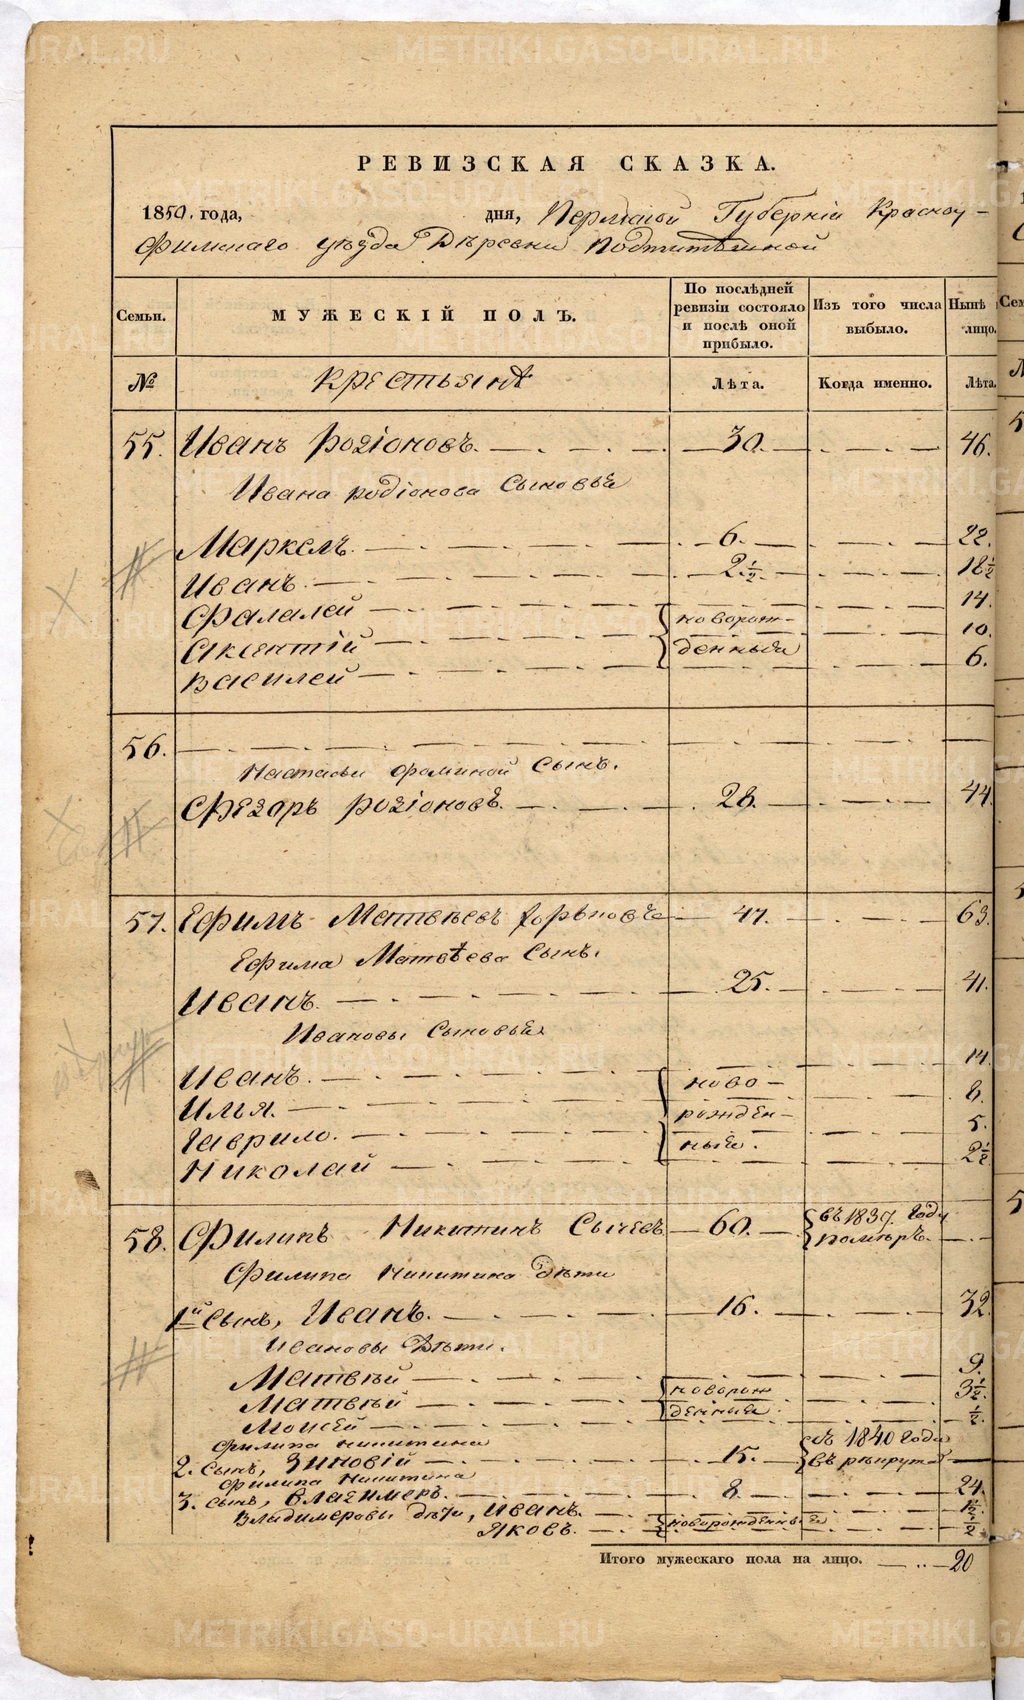 РЕВИЗСКАЯ СКАЗКА.
1850. года, дня, Пермской Губерніи Красноу-
фимскаго уѣзда Деревни
Семьи. МУЖЕСКІЙ ПОЛЪ. По послѣдней ревизіи состояло и послѣ оной прибыло. Изъ того числа выбыло. Нынѣ лицо.
№ Крестьянъ Лѣта. Когда именно. Лѣта.
55. Иванъ Родіоновъ. 30. 46.
Ивана Родіонова Сыновья
Маркелъ. 6. 22.
Иванъ. 2 1/2. 18 1/2
Фалалей новорож- 14.
Аксентій денныя 10.
Василей 6.
56.
Настасьи Фоминой Сынъ.
Федоръ Родіоновъ. 28. 44.
57. Ефимъ Матвѣевъ 47. 63.
Ефима Матвѣева Сынъ.
Иванъ. 25. 41.
Ивановы Сыновья
Иванъ. ново- 14.
Илья. рожден- 8.
Гаврило. ныя. 5.
Николай 2 1/2
58. Филипъ Никитинъ Сычевъ 60. въ 1837. Году помѣръ.
Филипа Никитина Дѣти
1й Сынъ, Иванъ. 16. 32.
Ивановы Дѣти.
Матвѣй 9.
Матвѣй новорож 3 1/2.
Моисей денныя. 1/2.
Филипа Никитина
2. сынъ, Зиновій 15. въ 1840 Года въ рекруты
Филипа Никитина
3. сынъ, Владимеръ. 8. 24.
Владимеровы дѣти, Иванъ. новорожденныя
Яковъ. 1/2
Итого мужескаго пола на лицо. 20
METRIKI.GASO-URAL.RU